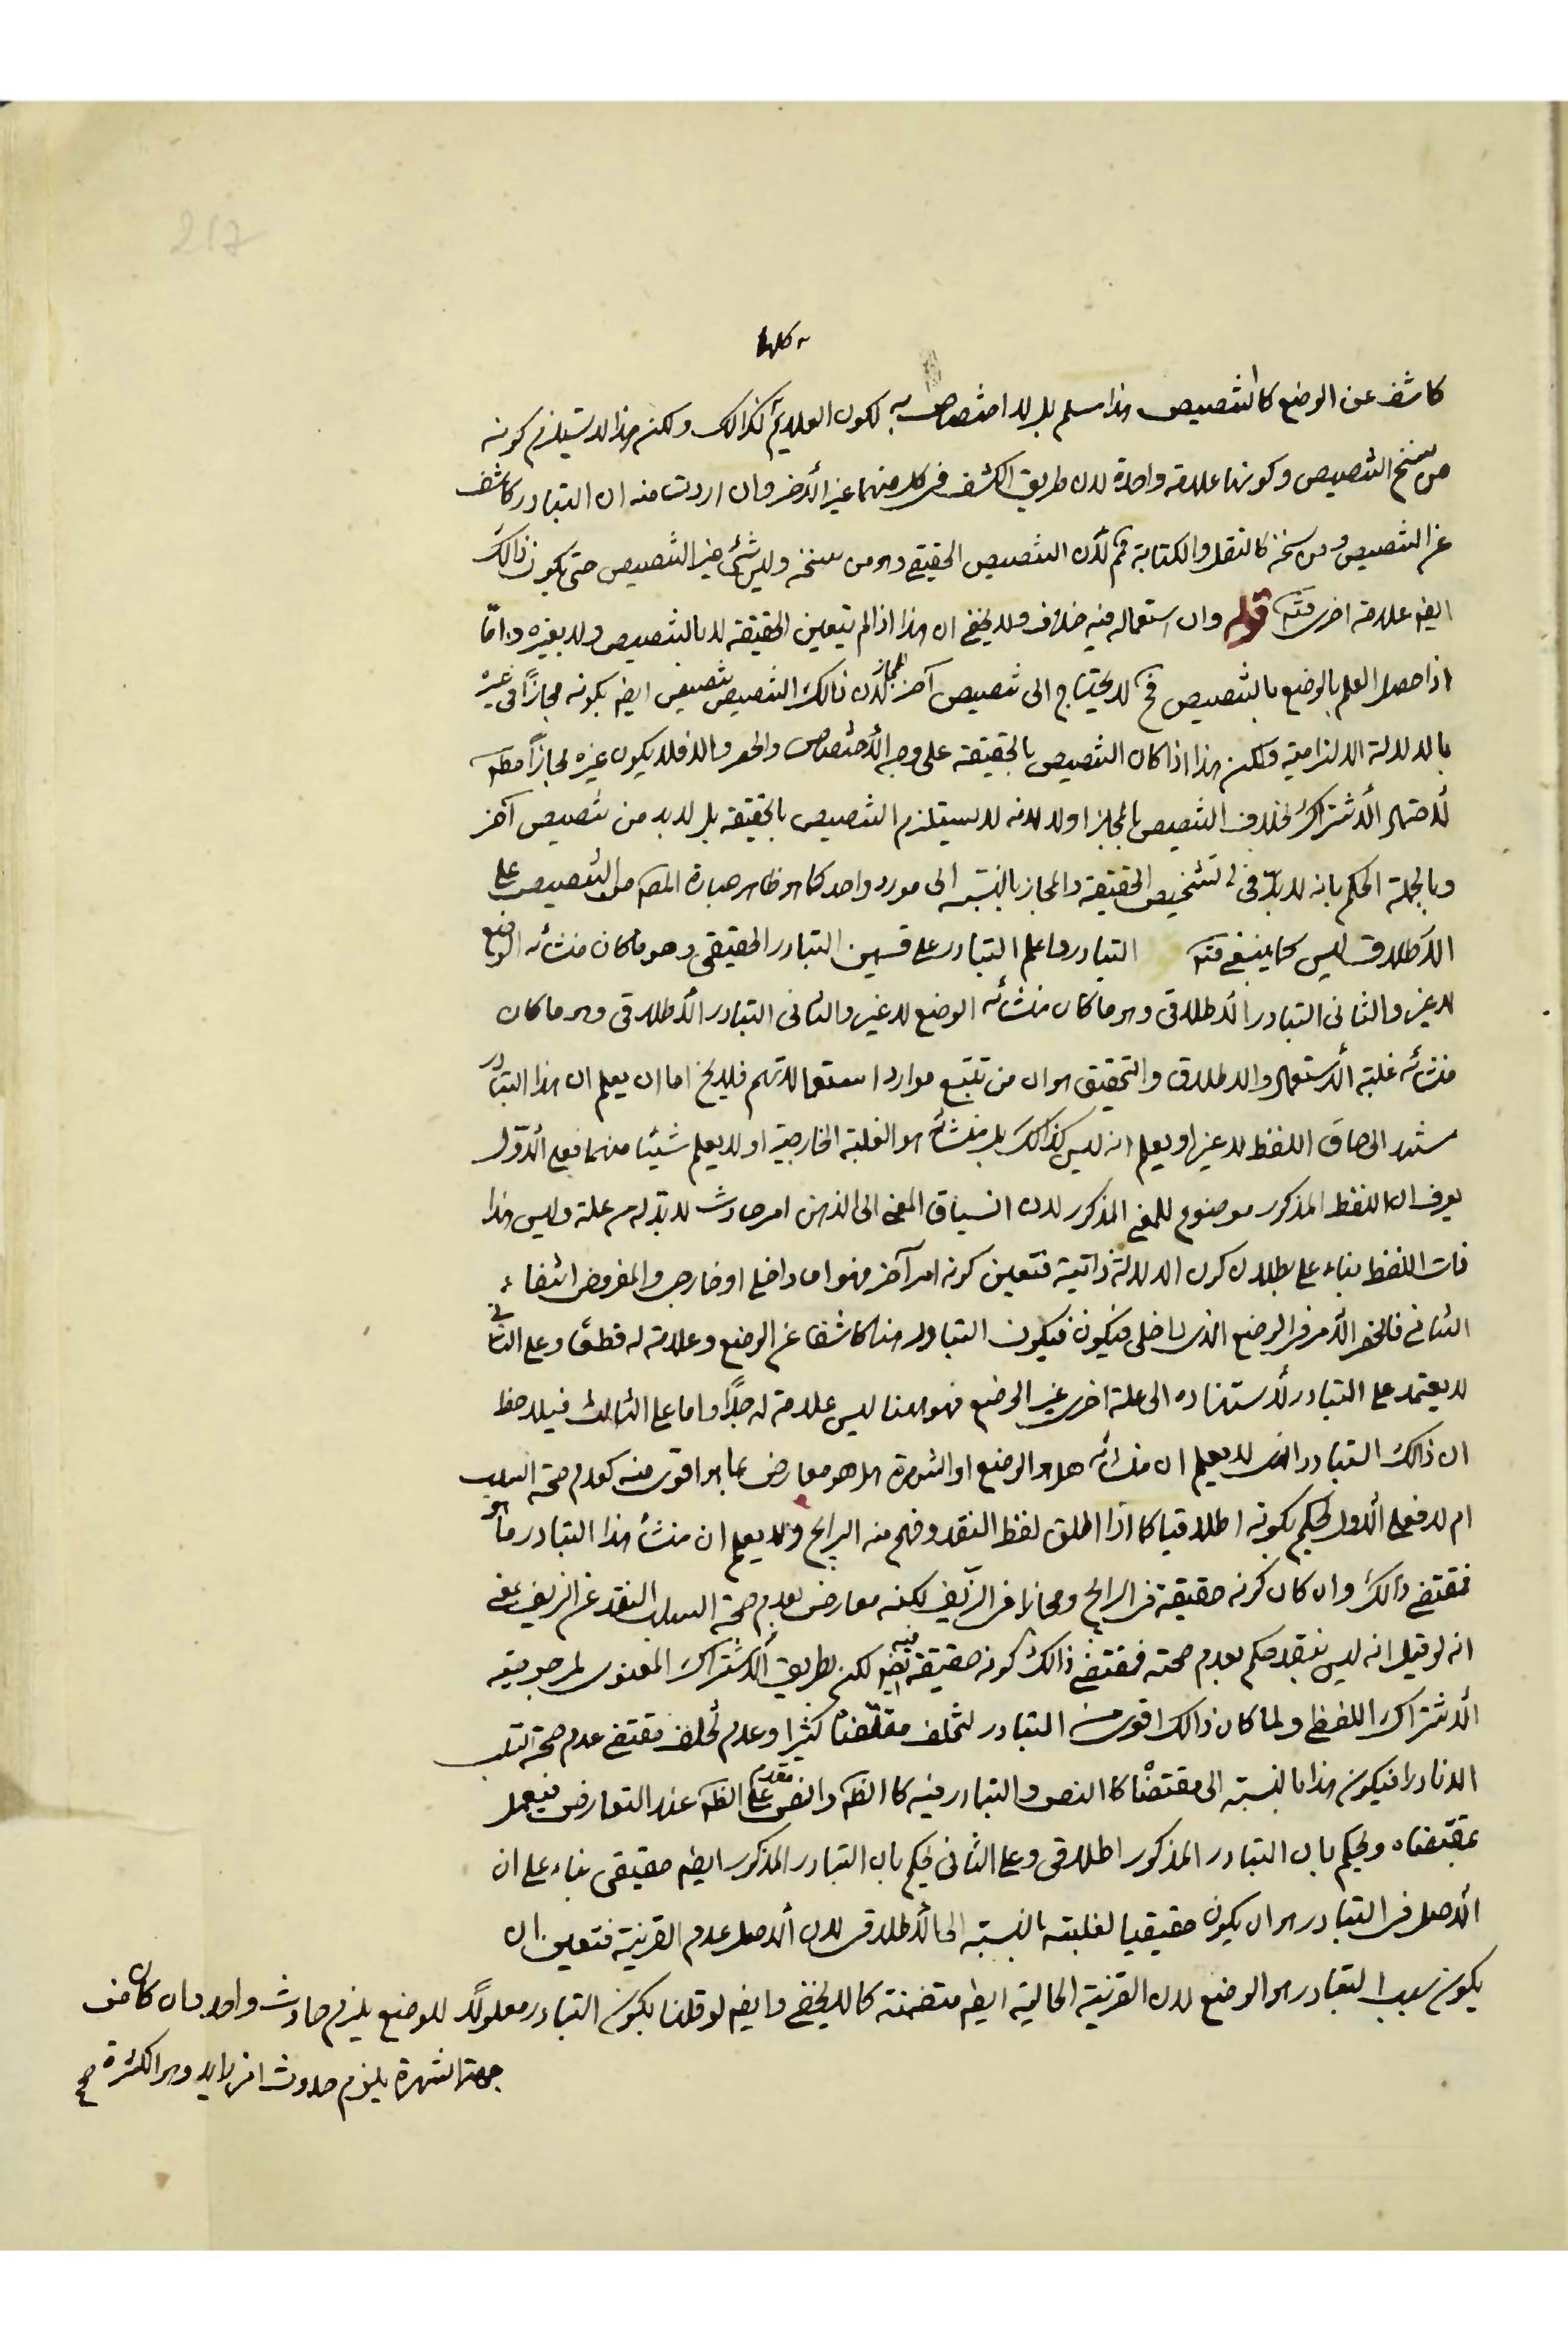 217
كلها
كاشف عن الوضع كالتنصيص هذا مسلم بل لا اختصاص به لكون العلايم كذالك ولكن هذا لا يستلزم كونه
من سنخ التنصيص وكونها علامة واحدة لان طريق الكشف فى كل منهما غير الأخر وان اردت منه ان التبادر كاشف
عن التنصيص ومن سنخه كالنقل والكتابة فم لأن التنصيص الحقيقى وهو من سنخه وليس شئ غير التنصيص حتى يكون ذالك
ايضا علامة اخرى فتد قوله وان استعماله فيه خلاف ولا يخفى ان هذا اذا لم يتعين الحقيقة لا بالتنصيص ولا بغيره واما
اذا حصل العلم بالوضع بالتنصيص فح لا يحتاج الى تنصيص آخر للمجاز لأن ذالك التنصيص تنصيص ايضا بكونه مجازاً فى غيره
بالدلالة الالتزامية ولكن هذا اذا كان التنصيص بالحقيقة على وجه الأختصاص والحصر والا فلا يكون غيره مجازاً مطه
لأحتمال الأشتراك بخلاف التنصيص بالمجاز اولا لانه لا يستلزم التنصيص بالحقيقة بل لا بد من تنصيص آخر
وبالجملة الحكم بانه لا بدّ فى تشخيص الحقيقة والمجاز بالنسبة الى مورد واحد كما هو ظاهر عبارة المصه من التنصيص على
الأطلاق ليس كما ينبغى فتد التبادر فاعلم التبادر على قسمين التبادر الحقيقى وهو ما كان منشأه الوضع
لا غير والثانى التبادر الأطلاقى وهو ما كان منشأه الوضع لا غير والثانى التبادر الأطلاقى وهو ما كان
منشأه غلبة الأستعمال والاطلاق والتحقيق هو ان من تتبع موارد استعمالاتهم فلا يخ اما ان يعلم ان هذا التبادر
مستند الى حاق اللفظ لا غير او يعلم انه ليس كذالك بل منشأه هو الغلبة الخارجية او لا يعلم شيئا منهما فعلى الأول
يعرف ان اللفظ المذكور موضوع للمعنى المذكور لان انسياق المعنى الى الذهن امر حادث لا بدّ له من علة وليس هذا
ذات اللفظ بناء على بطلان كون الدلالة ذاتية فتعين كونه امر آخر فهو اما داخلى او خارجى والمفروض انتفاء
الثانى فانحصر الأمر فى الوضع الذى داخلى فيكون فيكون التبادر هنا كاشفا عن الوضع وعلامة له قطعا وعلى الثانى
لا يعتمد على التبادر لأستناده الى علة اخرى غير الوضع فهو هنا ليس علامة له جداً واما على الثالث فيلاحظ
ان ذالك التبادر الذى لا يعلم ان منشأه هل هو الوضع او الشهرة هل هو معارض بما هو اقوى منه كعدم صحة السلب
ام لا فعلى الأول يحكم بكونه اطلاقيا كما اذا اطلق لفظ النقد وفهم منه الرايج ولا يعلم ان منشأ هذا التبادر ما هو
فمقتضى ذالك وان كان كونه حقيقة فى الرايج ومجازا فى الزيف لكنه معارض بعدم صحة السلب النقد عن الزيف يعنى
انه لو قيل انه ليس بنقد حكم بعدم صحته فمقتضى ذالك كونه حقيقة فيه ايضا لكن بطريق الأشتراك المعنوى لمرجوحية
الأشتراك اللفظى ولما كان ذالك اقوى من التبادر لتخلف مقتضاه كثيرا وعدم تخلف مقتضى عدم صحة السلب
الا نادرا فيكون هذا بالنسبة الى مقتضاه كالنص والتبادر فيه كالظه والنص مقدم على الظه عند التعارض فيعمل
بمقتضاه ويحكم بان التبادر المذكور اطلاقى وعلى الثانى يحكم بان التبادر المذكور ايضا حقيقى بناء على ان
الأصل فى التبادر هو ان يكون حقيقيا لغلبته بالنسبة الى الأطلاقى لان الأصل عدم القرينة فتعين ان
يكون سبب التبادر هو الوضع لان القرينة الحالية ايضا متضمنة كما لا يخفى وايضا لو قلنا بكون التبادر معلولًا للوضع يلزم حادث واحد وان كان من
جهة الشهرة يلزم حدوث ازيد وهو الكثرة صح